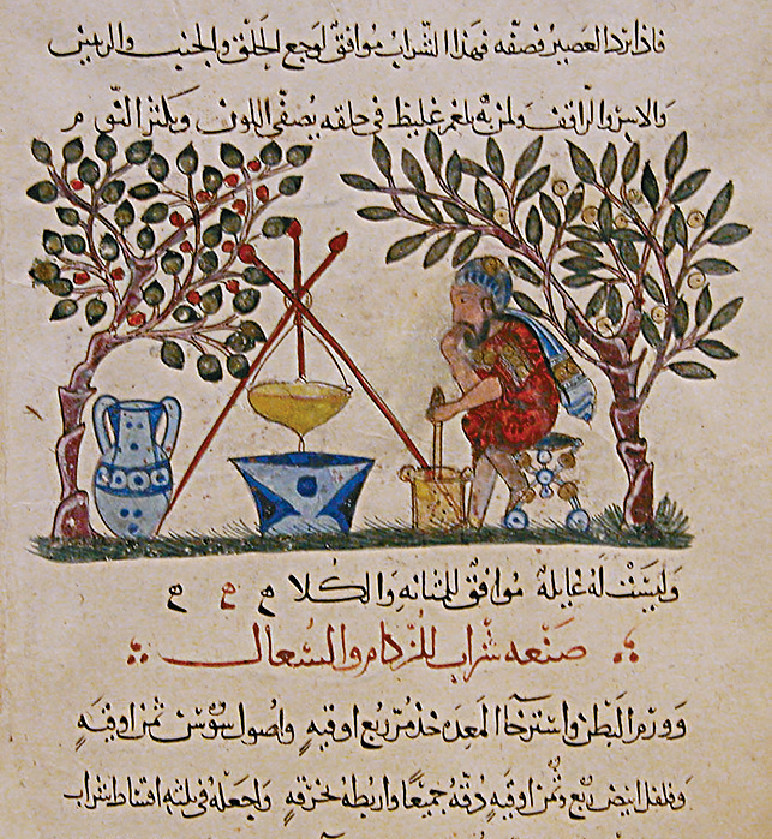 فاذا برد العصير فصفه فهذا الشراب موافق لوجع الحلق والجنب والرئيين
والاسر والراقف ولمن به بلغم غليظ في حلقه يصفي اللون ويكثر النوم م
وليست له غايله موافق للمثانه والكلا م م م
صنعه شراب للزكام والسعال
وورم البطن واسترخا المعده خذ مر ربع اوقيه واصول سوسن ثمن اوقيه
وفلفل ابيض ربع وثمن اوقيه دقه جميعا واربطه بخرقه واجعله في ثلثه اقساط شراب